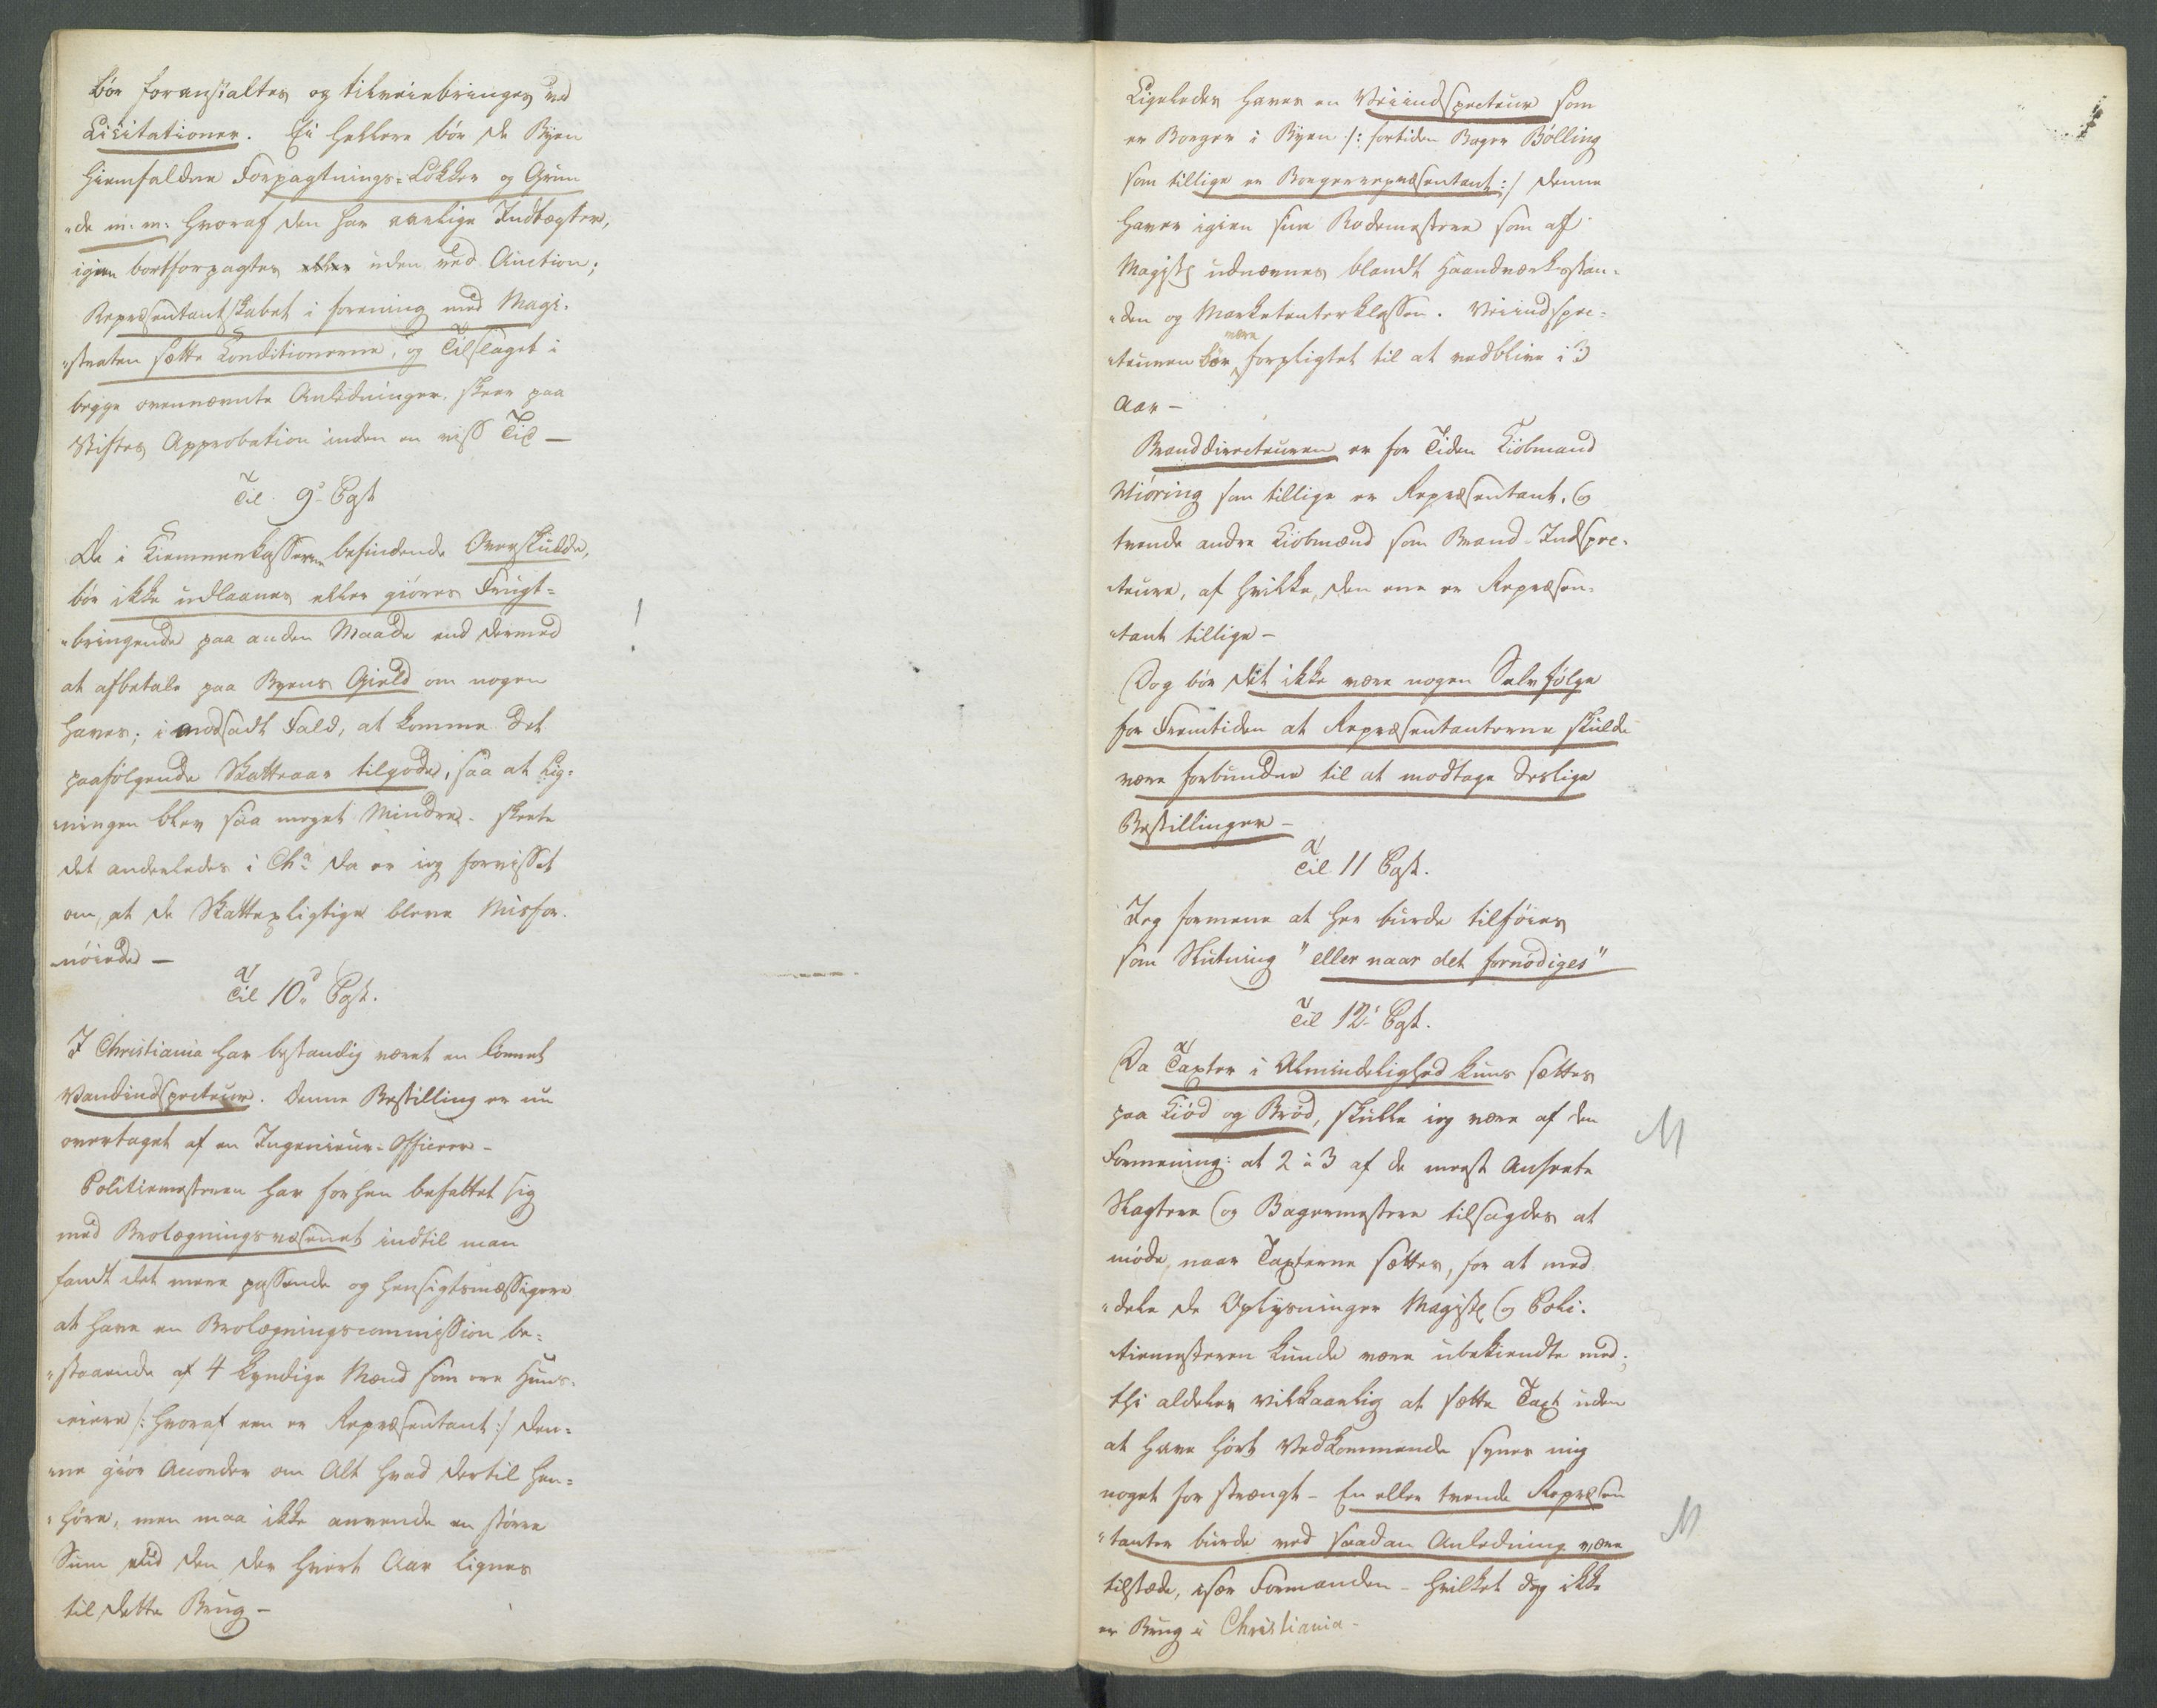 bör foranstaltes og tilveiebringes ved
Licitationer. Ei hellere bör de Byen
hiemfaldne Forpagtnings-Løkker og Grun
"de m: m: hvoraf den har aarlige Indtægter,
igien bortforpagtes uden ved Auction;
Repræsentantskabet i forening med Magi-
"straten sætte Conditionerne, og Tilslaget i
begge ovennævnte Anledninger skeer paa
Stiftes Approbation inden en viss Tid —
Til 9de Pgst
De i Kiemnerkasserne befindende Overskudde,
bör ikke udlaanes eller giöres Frugt-
"bringende paa anden Maade end dermed
at afbetale paa Byens Gield om nogen
haves; i modsadt Fald, at komme det
paafölgende Skatteaar tilgode, saa at Lig-
"ningen blev saa meget Mindre. Skeete
det anderledes i Cha: da er jeg forvisset
om, at de Skattepligtige bleve Misfor-
"nöiede —
Til 10de Pgst.
I Christiania har bestandig været en lönnet
Vandindspecteur. Denne Bestilling er nu
overtaget af en Ingenieur-Officeer -
Politiemesteren har forhen befattet sig
med Brolægningsvæsenet indtil man
fandt det mere passende og hensigtsmæssigere
at have en Brolægningscommission be-
"staaende af 4 kyndige Mænd som ere Huus-
"eiere /: hvoraf een er Repræsentant :/ Den-
"ne giör Accorder om Alt hvad dertil hen-
"höre, men maa ikke anvende en större
Sum end den der hvert Aar lignes
til dette Brug -
Ligeledes haves en Veiindspecteur som
er Borger i Byen /: fortiden Bager Bölling
som tillige er Borgerrepræsentant :/ denne
haver igien sine Rodemestere som af
Magistr udnævnes blandt Haandværksstan-
"den og Marketenterklassen. Veiindspec-
"teuren bör være forpligtet til at vedblive i 3
Aar -
Branddirecteuren er for Tiden Kiöbmand
Niöring som tillige er Repræsentant, og
tvende andre Kiöbmænd som Brand-Indspec-
"teurer, af hvilke, den ene er Repræsen-
"tant tillige -
Dog bör det ikke være nogen Selvfölge
for Fremtiden at Repræsentanterne skulde
være forbundne til at modtage deslige
Bestillinger -
Til 11 Pgst.
Jeg formene at her burde tilföies
som Slutning "eller naar det fornödiges"
Til 12te Pgst.
Da Taxter i Almindelighed kuns sættes
paa Kiöd og Bröd, skulle jeg være af den
Formening: at 2 à 3 af de meest Ansete
Slagtere og Bagermestere tilsagdes at
möde, naar Taxterne sættes, for at med
"dele de Oplysninger Magistr og Poli-
"tiemesteren kunde være ubekiendte med;
thi aldeles vilkaarlig at sætte Taxt uden
at have hört Vedkommende synes mig
noget for strængt - En eller tvende Repræsen
"tanter burde ved saadan Anledning være
tilstæde, især Formanden - hvilket dog ikke
er Brug i Christiania -